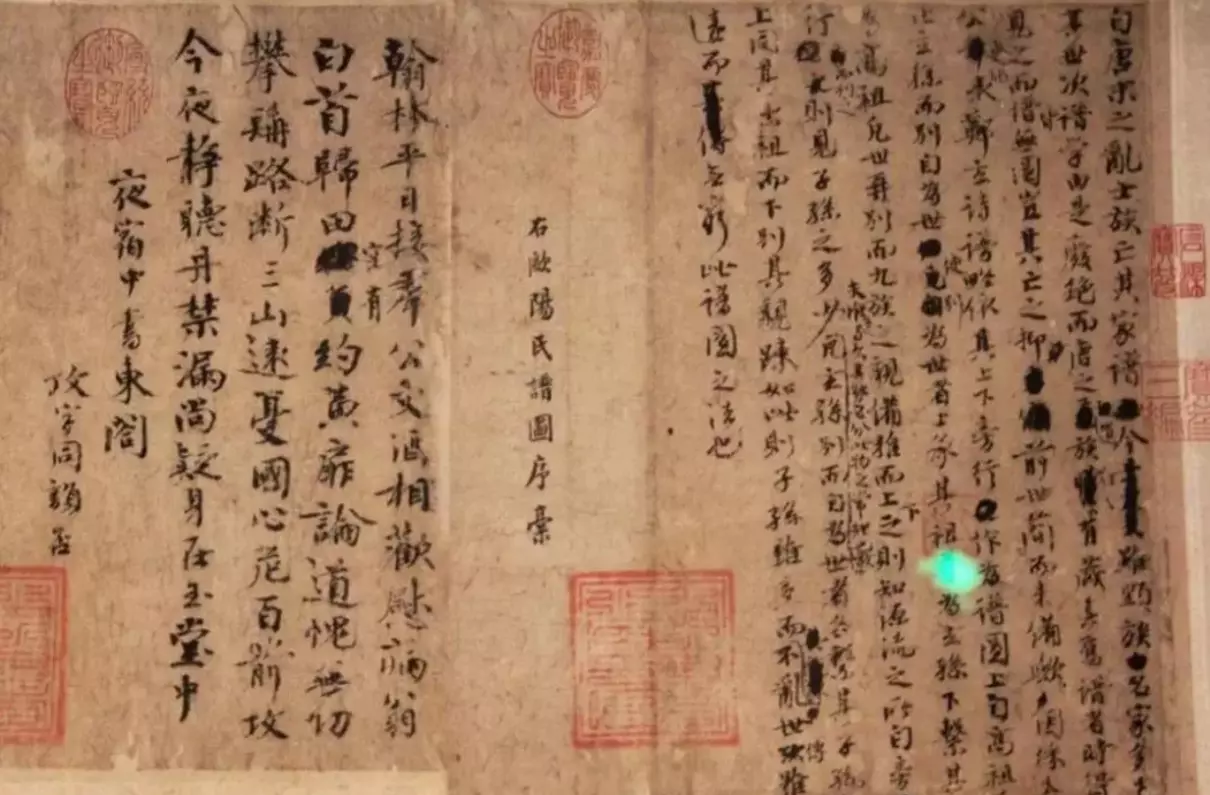 自唐末之亂士族亡其家譜今雖顯族名家多
其世次譜學由是廢絕而唐之遺族往往有藏其舊譜者時得
見之而譜無圖豈其亡之抑前世簡而未備歟因採
公史記表鄭玄詩譜略依其上下旁行作為譜圖上自高祖
止玄孫而別自為世使別為世者上承其祖為玄孫下繫其
為高祖凡世再別而九族之親備推而上下之則知源流之所自旁
行而列之則見子孫之多少夫惟多與久其勢必分此物之常理也凡玄孫別而自為世者各繫其子孫
上同其出祖而下別其親疎如此則子孫雖多而不亂世傳雖
遠而無窮此譜圖之法也
右歐陽氏譜圖序稾
翰林平日接羣公文酒相歡慰病翁
白首歸田空有約黃扉論道愧無功
攀髯路斷三山遠憂國心危百箭攻
今夜靜聽丹禁漏尚疑身在玉堂中
夜宿中書東閣
攻字同韻否